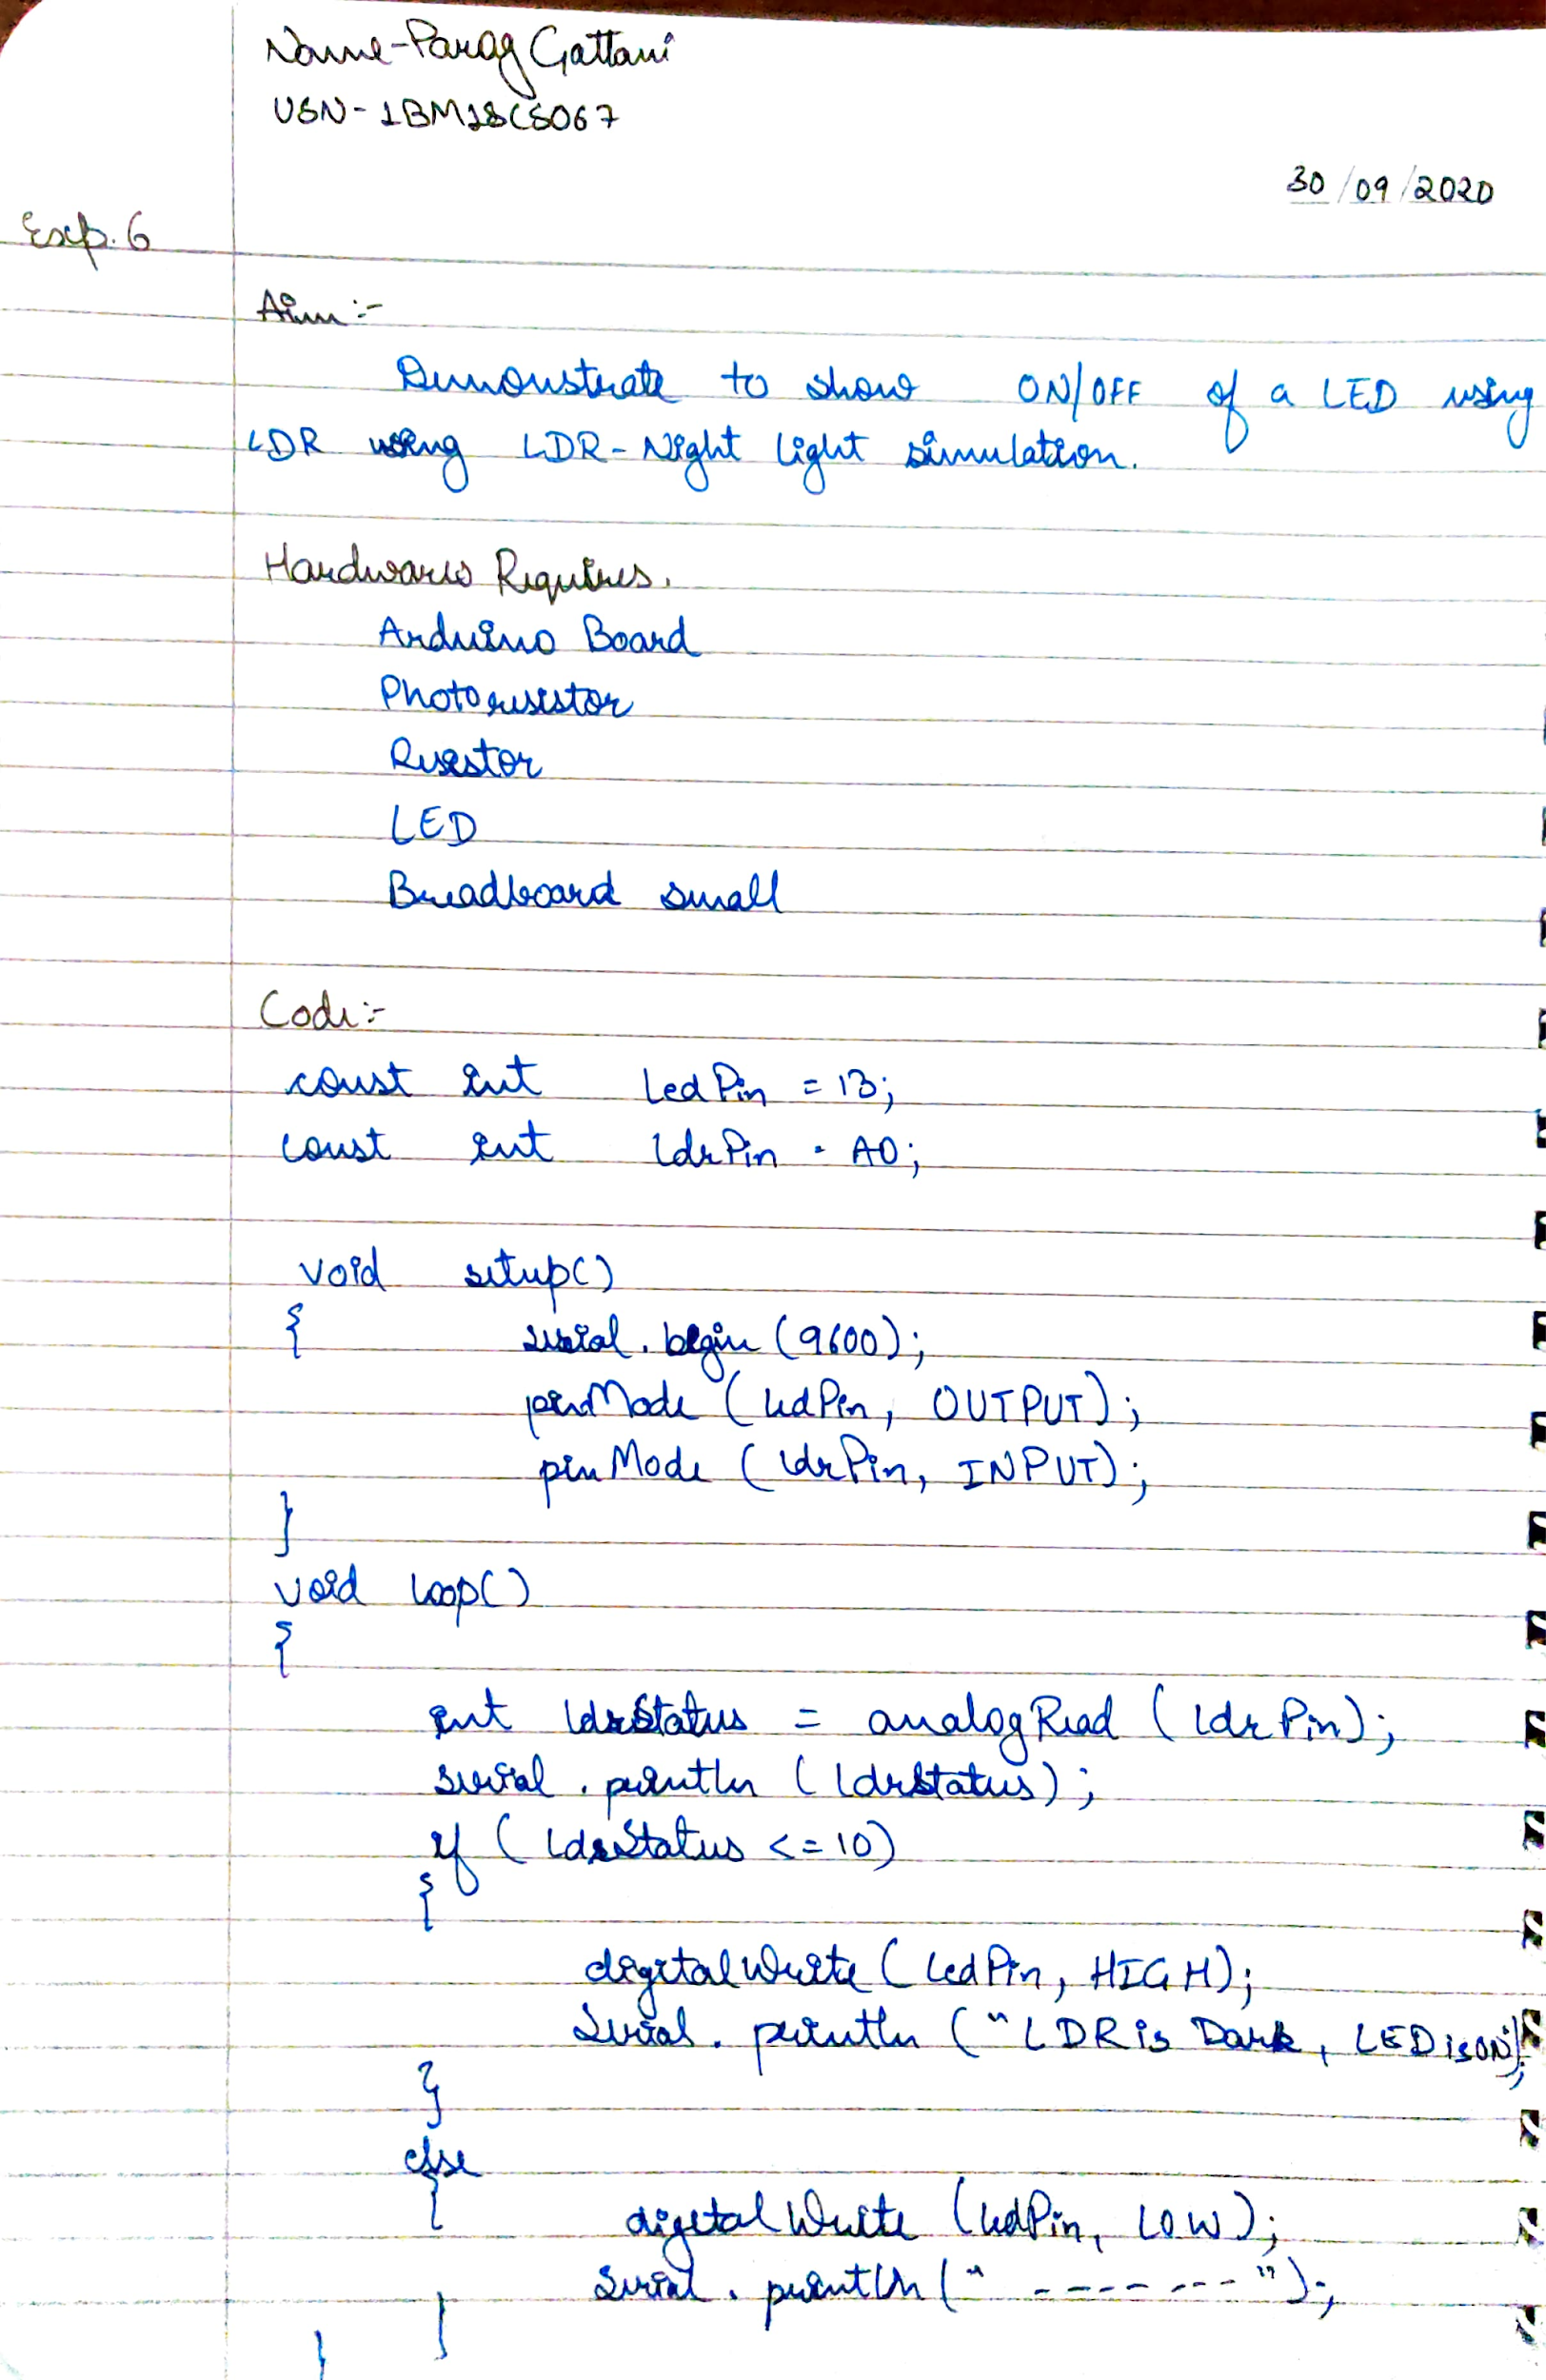 Name-Parag Gattani
USN-1BM18CS067
30/09/2020
Exp. 6
Aim:-
Demonstrate to show ON/OFF of a LED using
LDR using LDR-Night Light simulation.
Hardwares Requires.
Arduino Board
Photoresistor
Resistor
LED
Breadboard small
Code:-
const int ledPin = 13;
const int ldrPin = A0;
void setup()
{ serial.begin(9600);
pinMode (ledPin, OUTPUT);
pinMode (ldrPin, INPUT);
}
void loop()
{
int ldrStatus = analogRead (ldrPin);
serial.println (ldrStatus);
if (ldrStatus <=10)
{
digitalWrite (ledPin, HIGH);
Serial.println ("LDR is Dark, LED is ON");
}
else
{ digitalWrite (ledPin, LOW);
Serial.println (" ------- ");
}
}